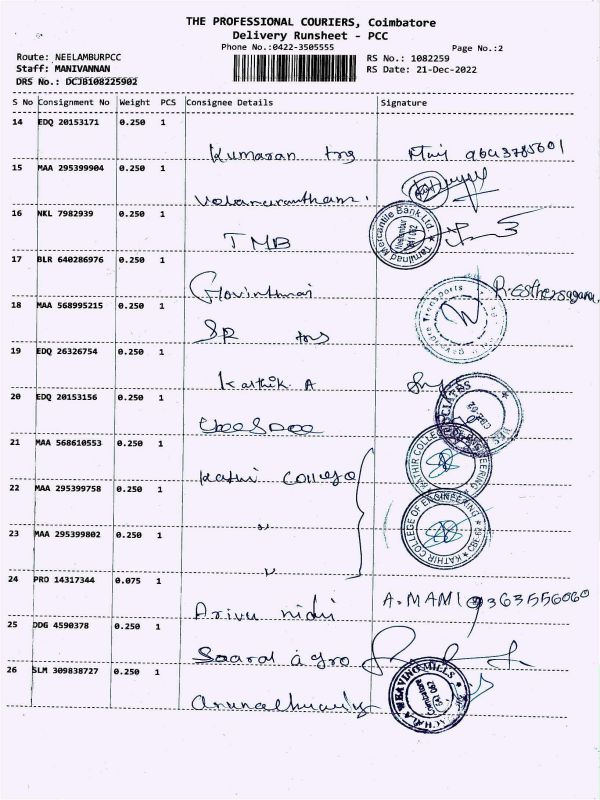 THE PROFESSIONAL COURIERS, Coimbatore
Delivery Runsheet - PCC
Phone No.:0422-3505555
Page No.:2
Route: NEELAMBURPCC
RS No.: 1082259
Staff: MANIVANNAN
RS Date: 21-Dec-2022
DRS No.: DCJB108225902
S No Consignment No Weight PCS Consignee Details Signature
14 EDQ 20153171 0.250 1
Kumaran tng
15 MAA 295399904 0.250 1
16 NKL 7982939 0.250 1
TMB
Tamilnad Mercantile Bank Ltd.
17 BLR 640286976 0.250 1
18 MAA 568995215 0.250 1
SR
19 EDQ 26326754 0.250 1
Karthik A
20 EDQ 20153156 0.250 1
21 MAA 568610553 0.250 1
Kathir College
KATHIR COLLEGE OF ENGINEERING
22 MAA 295399758 0.250 1
"
KATHIR COLLEGE OF ENGINEERING
23 MAA 295399802 0.250 1
"
24 PRO 14317344 0.075 1
Arivu nidhi A. MAMI 9363556060
25 DDG 4590378 0.250 1
Saaral agro
26 SLM 309838727 0.250 1
WEAVING MILLS